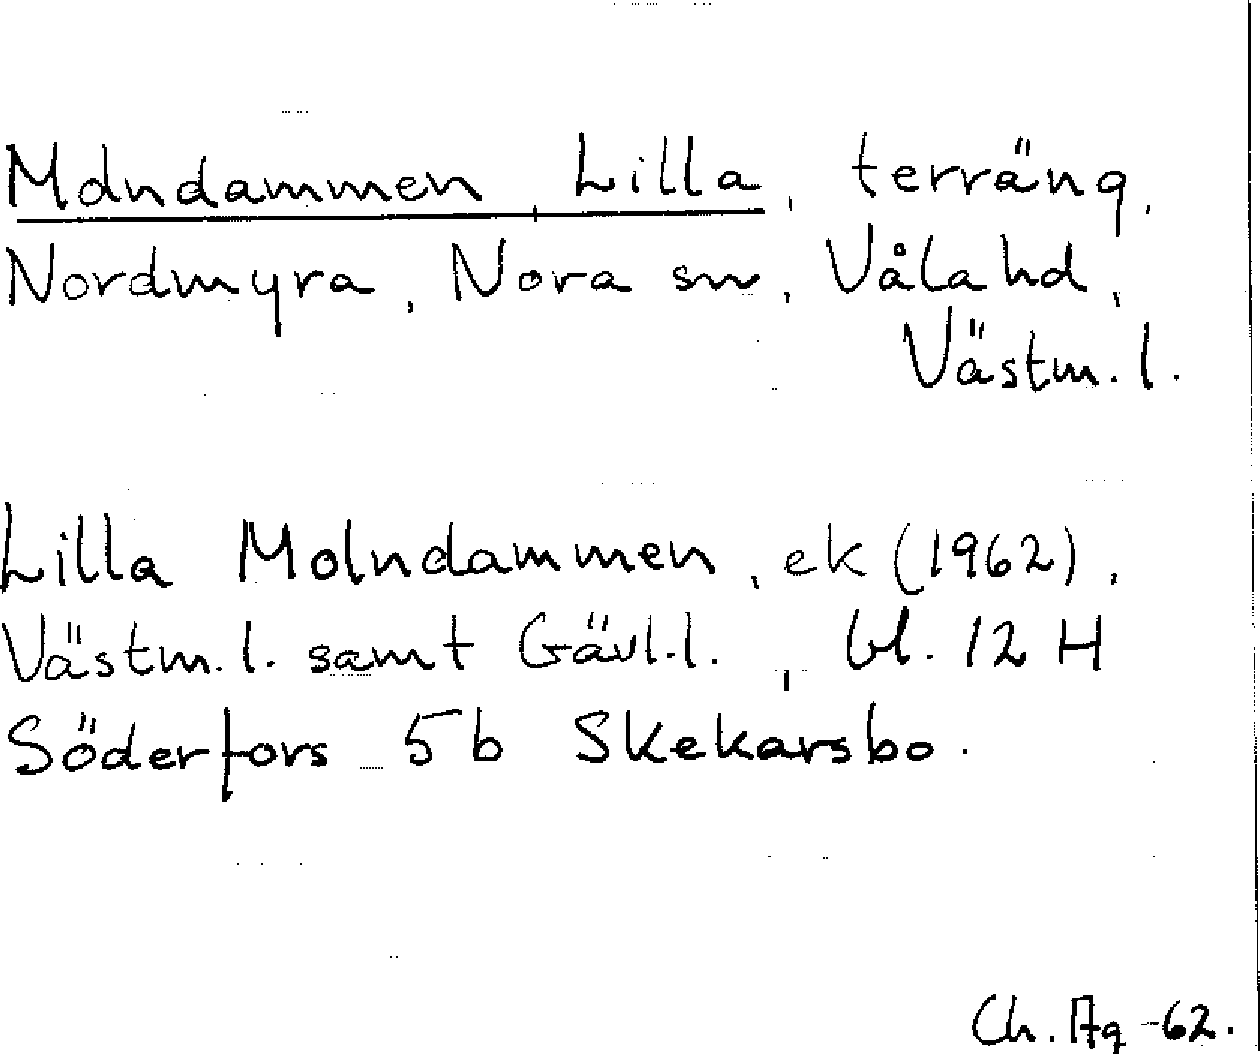 Molndammen, Lilla, terräng,
Nordmyra, Nora sn, Våla hd,
Västm. l.
Lilla Molndammen, ek (1962),
Västm. l. samt Gävl. l., bl. 12 H
Söderfors 5b Skekarsbo.
Ch. Ag -62.